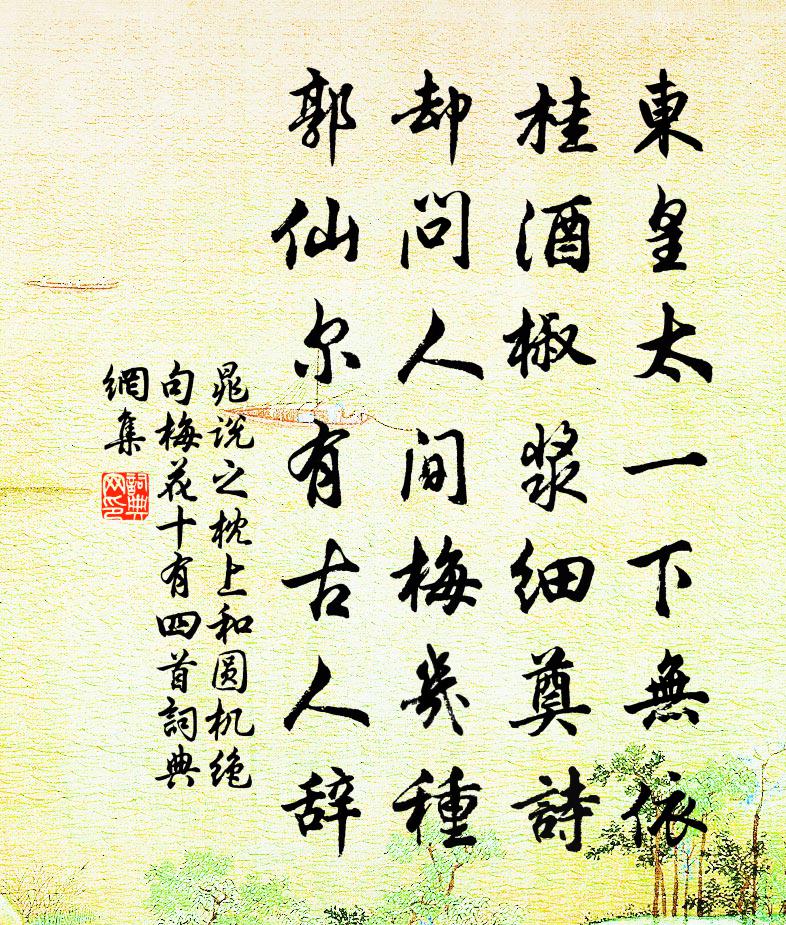 東皇太一下無依
桂酒椒漿細奠詩
却問人间梅幾種
郭仙尔有古人辞
晁说之枕上和圆机绝
句梅花十有四首詞典
網集
詞典
网印